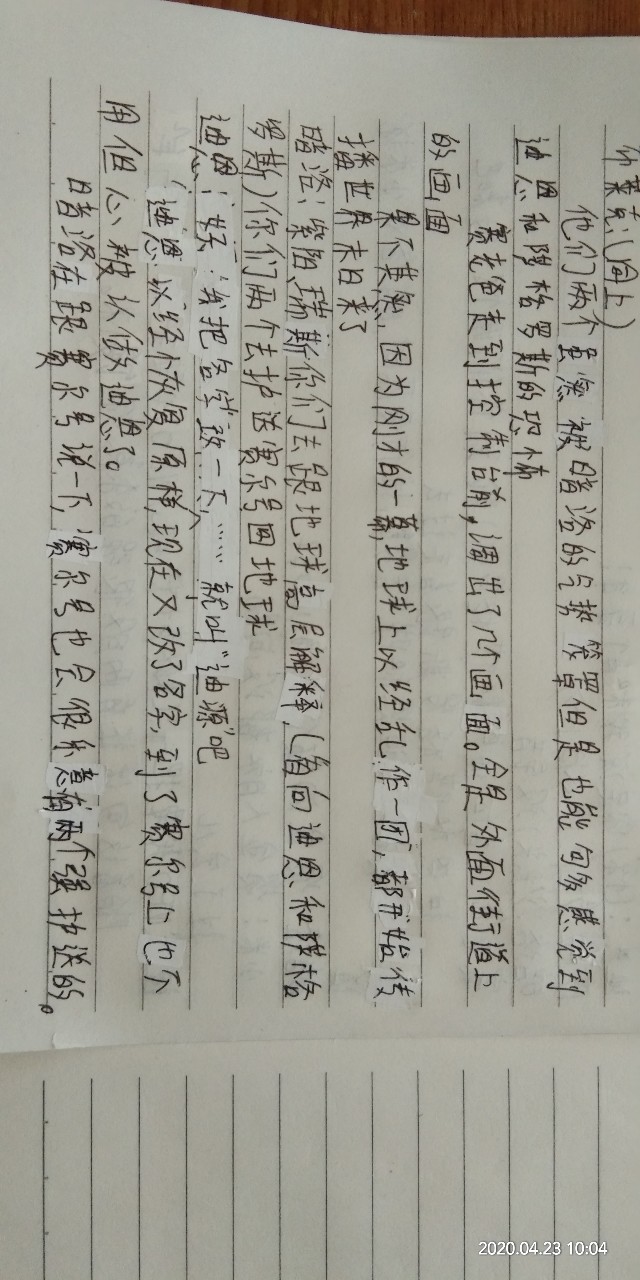 布莱克:(同上)
他们两个虽然被暗洛的气势笼罩但是也能句多感觉到
迪恩和陨格罗斯的恐怖
赛老爸走到控制台前,调出了几个画面。全是外面街道上
的画面
果不其然,因为刚才的一幕,地球上以经乱作一团,都开始传
播世界末日来了
暗洛:紫阳,瑞斯你们去跟地球高层解释,(看向迪恩和陨格
罗斯)你们两个去护送赛尔号回地球
迪恩:好:我把名字改一下,……就叫“迪源”吧
迪恩以经恢复原样,现在又改了名字,到了赛尔号上也不
用但心被认做迪恩了。
暗洛在跟赛尔号说一下,赛尔号也会很乐意有两个强护送的。
2020.04.23 10:04